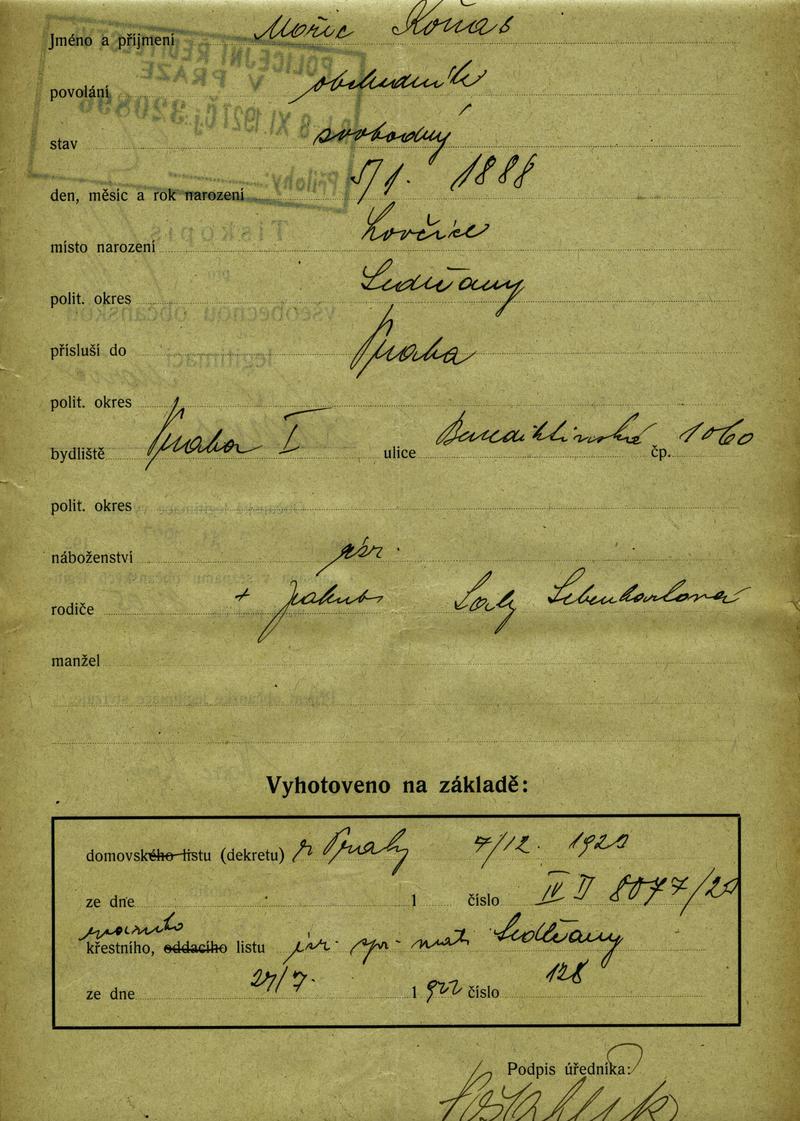 Jméno a příjmení Mořic Koňas
povolání obchodník
stav svobodný
den, měsíc a rok narození 5/1. 1888
místo narození Lovčice
polit. okres Sedlčany
přísluší do Praha
polit. okres
bydliště Praha I ulice Benediktinská čp. 1060
polit. okres
náboženství isr.
rodiče + Jakub Saly
manžel
Vyhotoveno na základě:
domovského listu (dekretu) z Prahy 7/12. 1920
ze dne 1 číslo IV D 8077/20
křestního, oddacího listu isr. mat. Sedlčany
ze dne 27/7. 1922 číslo 128
Podpis úředníka: